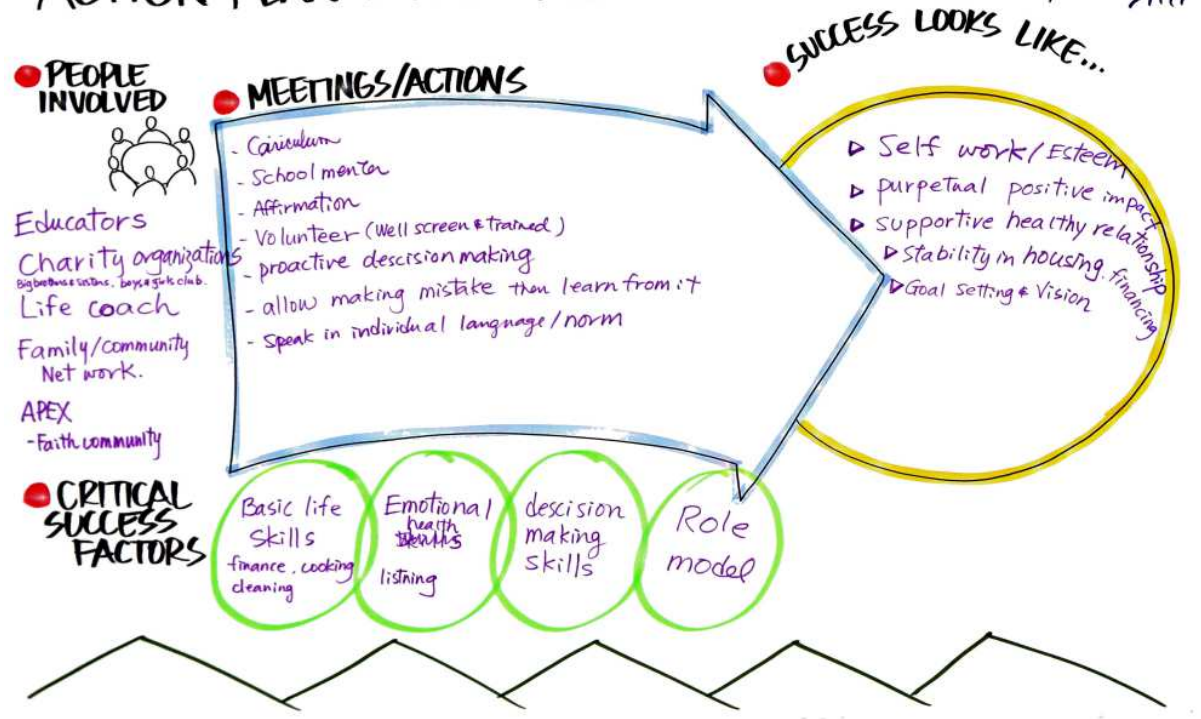 ACTION PLAN
SUCCESS LOOKS LIKE...
PEOPLE
INVOLVED
Educators
Charity organizations
Big brothers & sisters. boys & girls club.
Life coach
Family/community
Net work.
APEX
- Faith community
MEETINGS/ACTIONS
- Cariculum
- School menter
- Affirmation
- Volunteer (Well screen & trained)
- proactive descision making
- allow making mistake then learn from it
- Speak in individual language/norm
▷ Self work/Esteem
▷ purpetual positive impact
▷ supportive healthy relationship
▷ Stability in housing. financing
▷ Goal Setting & Vision
CRITICAL
SUCCESS
FACTORS
Basic life
Skills
finance, cooking
cleaning
Emotional
health
listning
descision
making
skills
Role
model